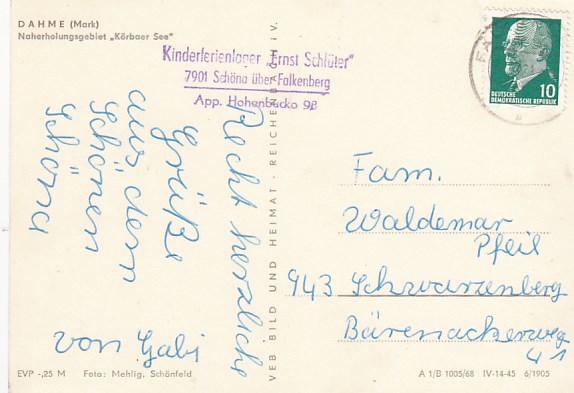 DAHME (Mark)
Naherholungsgebiet „Körbaer See"
Kinderferienlager "Ernst Schlüter"
7901 Schöna über Falkenberg
App. Hohenbucko 98
10
DEUTSCHE
DEMOKRATISCHE REPUBLIK
Recht herzliche
Grüße
aus dem
schönen
Schöna
von Gabi
VEB BILD UND HEIMAT · REICHENBACH i V.
Fam.
Waldemar
Pfeil
943 Schwarzenberg
Bärenackerweg
41
EVP -,25 M Foto: Mehlig, Schönfeld
A 1/B 1005/68 IV-14-45 6/1905